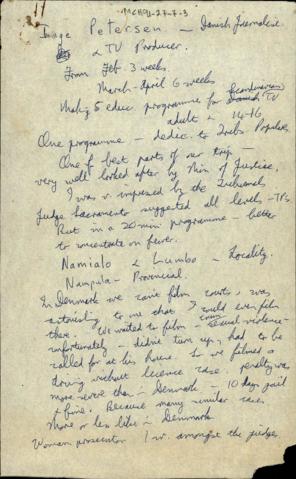 MCH91-27-7-3
Inage Petersen – Danish Journalist
& TV Producer.
From Feb 3 weeks
March-April 6 weeks
Making 5 educ. programme for Scandinavian TV
adult & 14-16
One programme – dedic. to Tribs Populares
One of best parts of our trip –
very well looked after by Min of Justice.
I was v. impressed by the Tribunals
Judge Sacramento suggested all levels – TPs
Put in a 20 min programme – better
to concentrate on fewer.
Namialo & Lumbo – Locality.
Nampula – Provincial.
In Denmark we can't film courts, was
astonishing to me that I could even film
there. We wanted to film sexual violence –
unfortunately – didn't turn up, had to be
called for at his house. So we filmed a
driving without licence case. penalty was
more severe than Denmark – 10 days gaol
& fine. Because many similar cases.
More or less like in Denmark
Woman prosecutor 1 w. amongst the judges